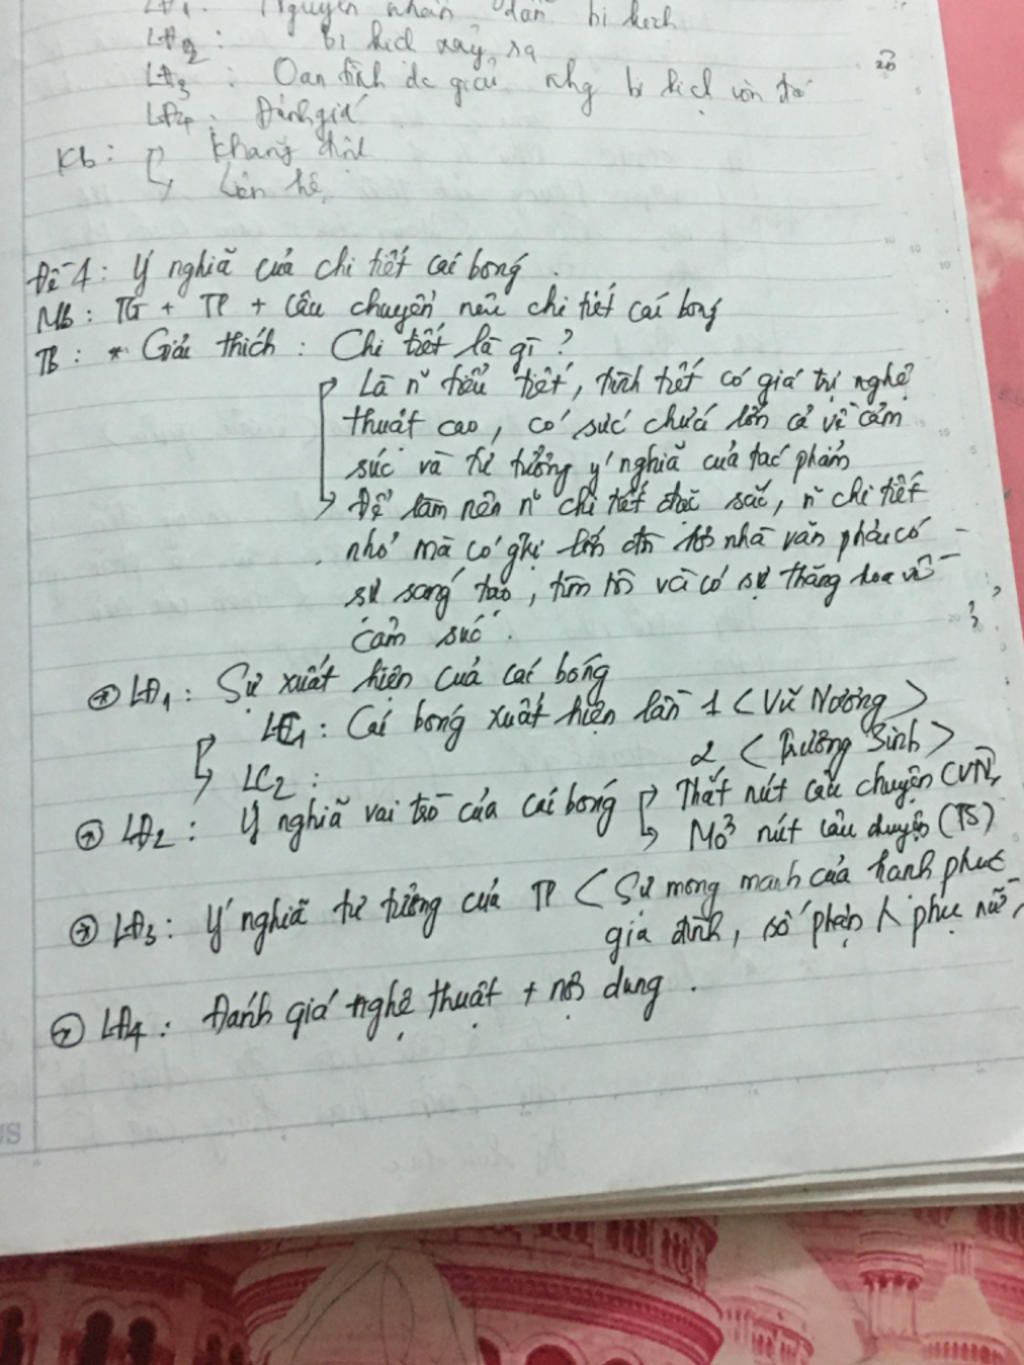 LĐ1: Nguyên nhân dẫn bi kịch
LĐ2: bi kịch xảy ra
LĐ3: Oan tình đc giải nhg bi kịch còn đó
LĐ4: Đánh giá
Kb: Khẳng định
Liên hệ
Đề 4: Ý nghĩa của chi tiết cái bóng.
Mb: TG + TP + Câu chuyện nêu chi tiết cái bóng
TB: * Giải thích: Chi tiết là gì?
Là n~ tiểu tiết, tình tiết có giá trị nghệ
thuật cao, có sức chứa lớn cả về cảm
súc và tư tưởng ý nghĩa của tác phẩm
Để làm nên n~ chi tiết đặc sắc, n~ chi tiết
nhỏ mà có lớn nhà văn phải có
sự sáng tạo, tìm tòi và có sự thăng hoa về
cảm súc.
LĐ1: Sự xuất hiện của cái bóng
LC1: Cái bóng xuất hiện lần 1 < Vũ Nương >
LC2: 2 < Trương Sinh >
LĐ2: Ý nghĩa vai trò của cái bóng Thắt nút câu chuyện (VN)
Mở nút câu chuyện (TS)
LĐ3: Ý nghĩa tư tưởng của TP < Sự mong manh của hạnh phúc
gia đình, số phận phụ nữ
LĐ4: Đánh giá nghệ thuật + nội dung.
US